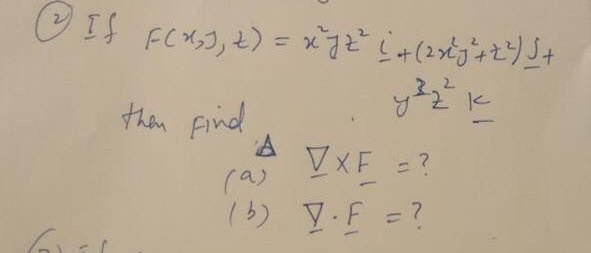 ② If F(x,y,z) = x²yz² i + (2x²y²+z²) j +
y³z² k
then find
(a) ∇×F = ?
(b) ∇·F = ?